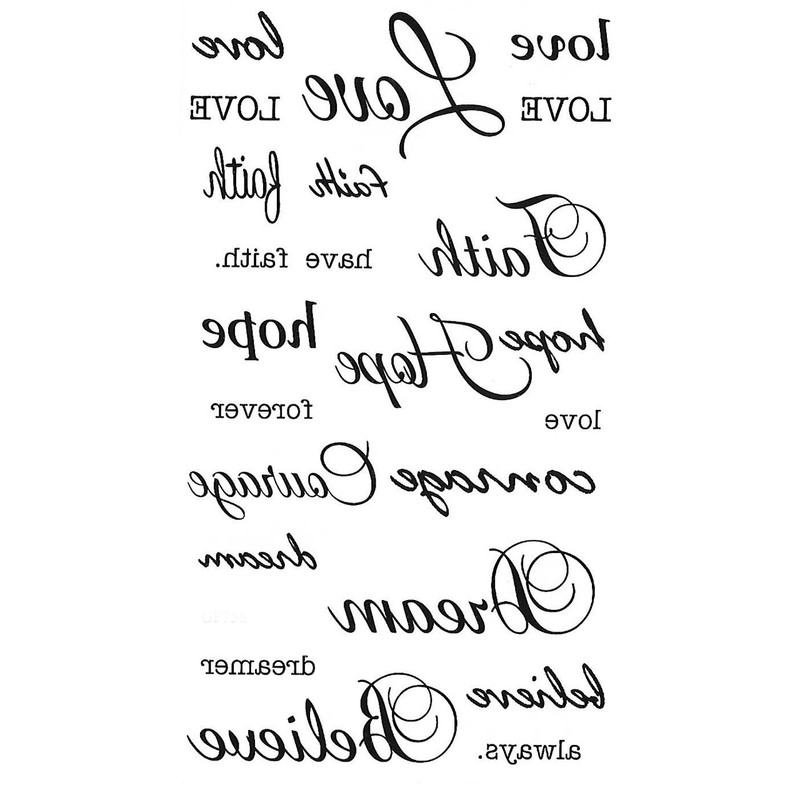 love Love love
LOVE LOVE
faith faith
Faith
have faith.
hope Hope hope
love forever
courage Courage
dream
Dream
dreamer
believe Believe
always.